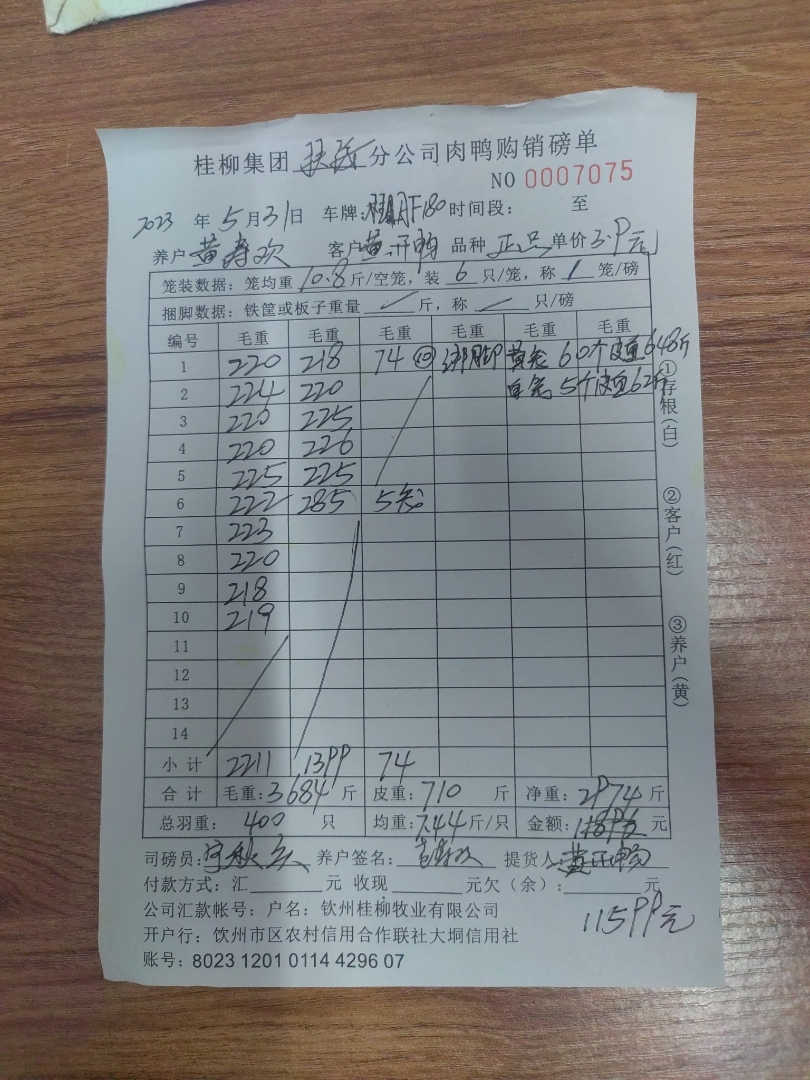 桂柳集团 分公司肉鸭购销磅单
NO 0007075
2023 年 5 月 31 日 车牌: F180 时间段: 至
养户 黄寿欢 客户 黄开畅 品种 正品 单价 3.9元
笼装数据: 笼均重 10.8 斤/空笼, 装 6 只/笼, 称 1 笼/磅
捆脚数据: 铁筐或板子重量 斤, 称 只/磅
编号 毛重 毛重 毛重 毛重 毛重 毛重
1 220 218 74 ⑩ 绑脚 黄笼 60个皮重648斤
2 224 220 白笼 5个皮重62斤
3 220 225
4 220 226
5 225 225
6 222 285 5笼
7 223
8 220
9 218
10 219
11
12
13
14
小计 2211 1399 74
合计 毛重: 3684 斤 皮重: 710 斤 净重: 2974 斤
总羽重: 400 只 均重: 7.44 斤/只 金额: 元
司磅员: 养户签名: 提货人: 黄开畅
付款方式: 汇 元 收现 元欠(余): 元
公司汇款帐号: 户名: 钦州桂柳牧业有限公司
11599元
开户行: 饮州市区农村信用合作联社大垌信用社
账号: 8023 1201 0114 4296 07
①存根(白)
②客户(红)
③养户(黄)